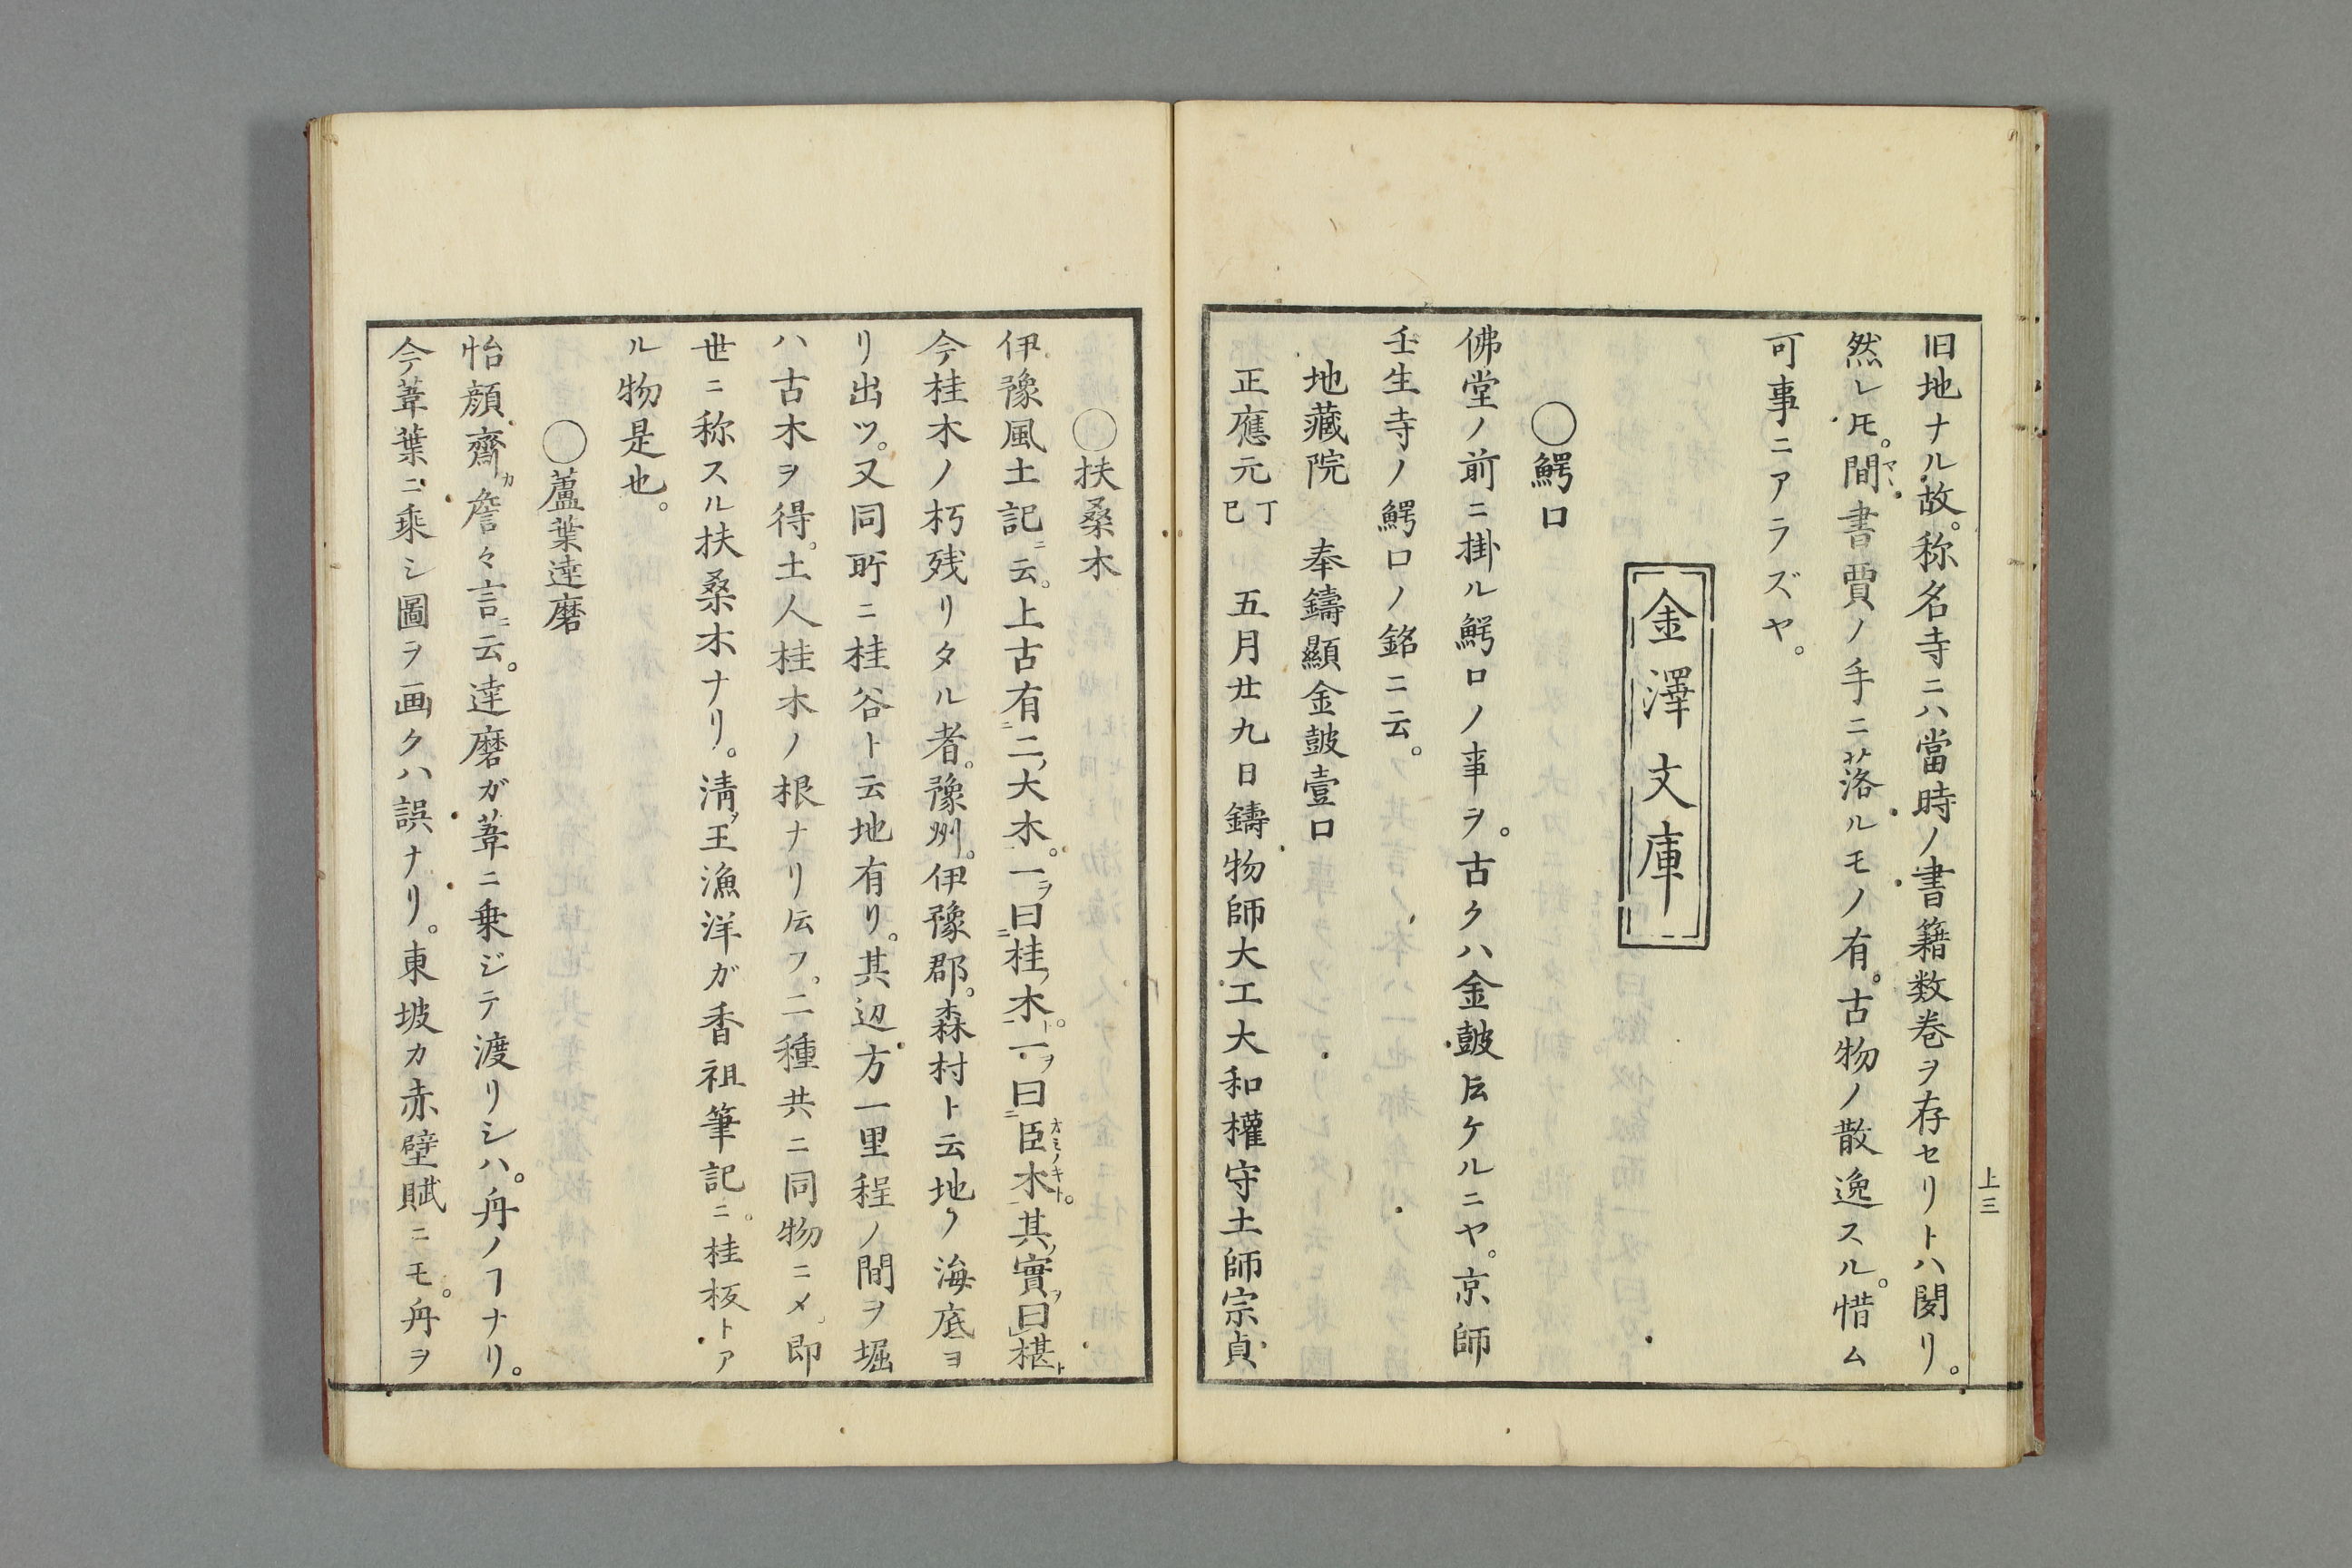 旧地ナル故。称名寺ニハ當時ノ書籍数巻ヲ存セリトハ聞リ。
然レ𪜈。間書賈ノ手ニ落ルモノ有。古物ノ散逸スル。惜ム
可事ニアラズヤ。
金澤文庫
○鰐口
佛堂ノ前ニ掛ル鰐口ノ事ヲ。古クハ金皷𫝂ケルニヤ。京師
壬生寺ノ鰐口ノ銘ニ云。
地藏院 奉鑄顯金皷壹口
正應元丁巳 五月廿九日鑄物師大工大和權守土師宗貞
上三
○扶桑木
伊豫風土記ニ云。上古有ニ二ノ大木。一ヲ曰ニ桂ノ木ト。一ヲ曰ニ臣木オミノキト。其ノ實ヲ曰椹ト
今桂木ノ朽残リタル者。豫州。伊豫郡。森村ト云地ノ海底ヨ
リ出ツ。又同所ニ桂谷ト云地有リ。其辺方一里程ノ間ヲ堀
ハ古木ヲ得。土人桂木ノ根ナリ𫝂フ。二種共ニ同物ニメ即
世ニ称スル扶桑木ナリ。淸ノ王漁洋ガ香祖筆記ニ。桂板トア
ル物是也。
○蘆葉達磨
怡顔齋カ詹々言ニ云。達磨ガ葦ニ乗ジテ渡リシハ。舟ノヿナリ。
今葦葉ニ乘シ圖ヲ画クハ誤ナリ。東坡カ赤壁賦ニモ。舟ヲ